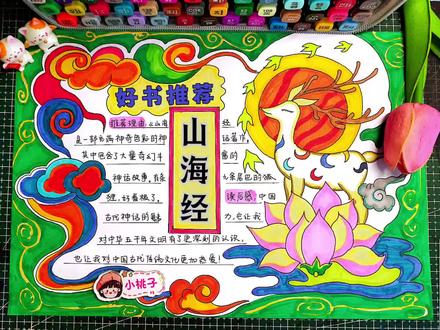 好书推荐
山海经
推荐理由：《山海经
是一部书写神奇色彩的神话著作，
其中包含了大量奇幻的
神话故事，有条尾巴的狐
狸，好看极了。
读后感：中国
古代神话的魅力，它让我
对中华五千年文明有了更深刻的认识。
也让我对中国古代传统文化更加热爱！
小桃子